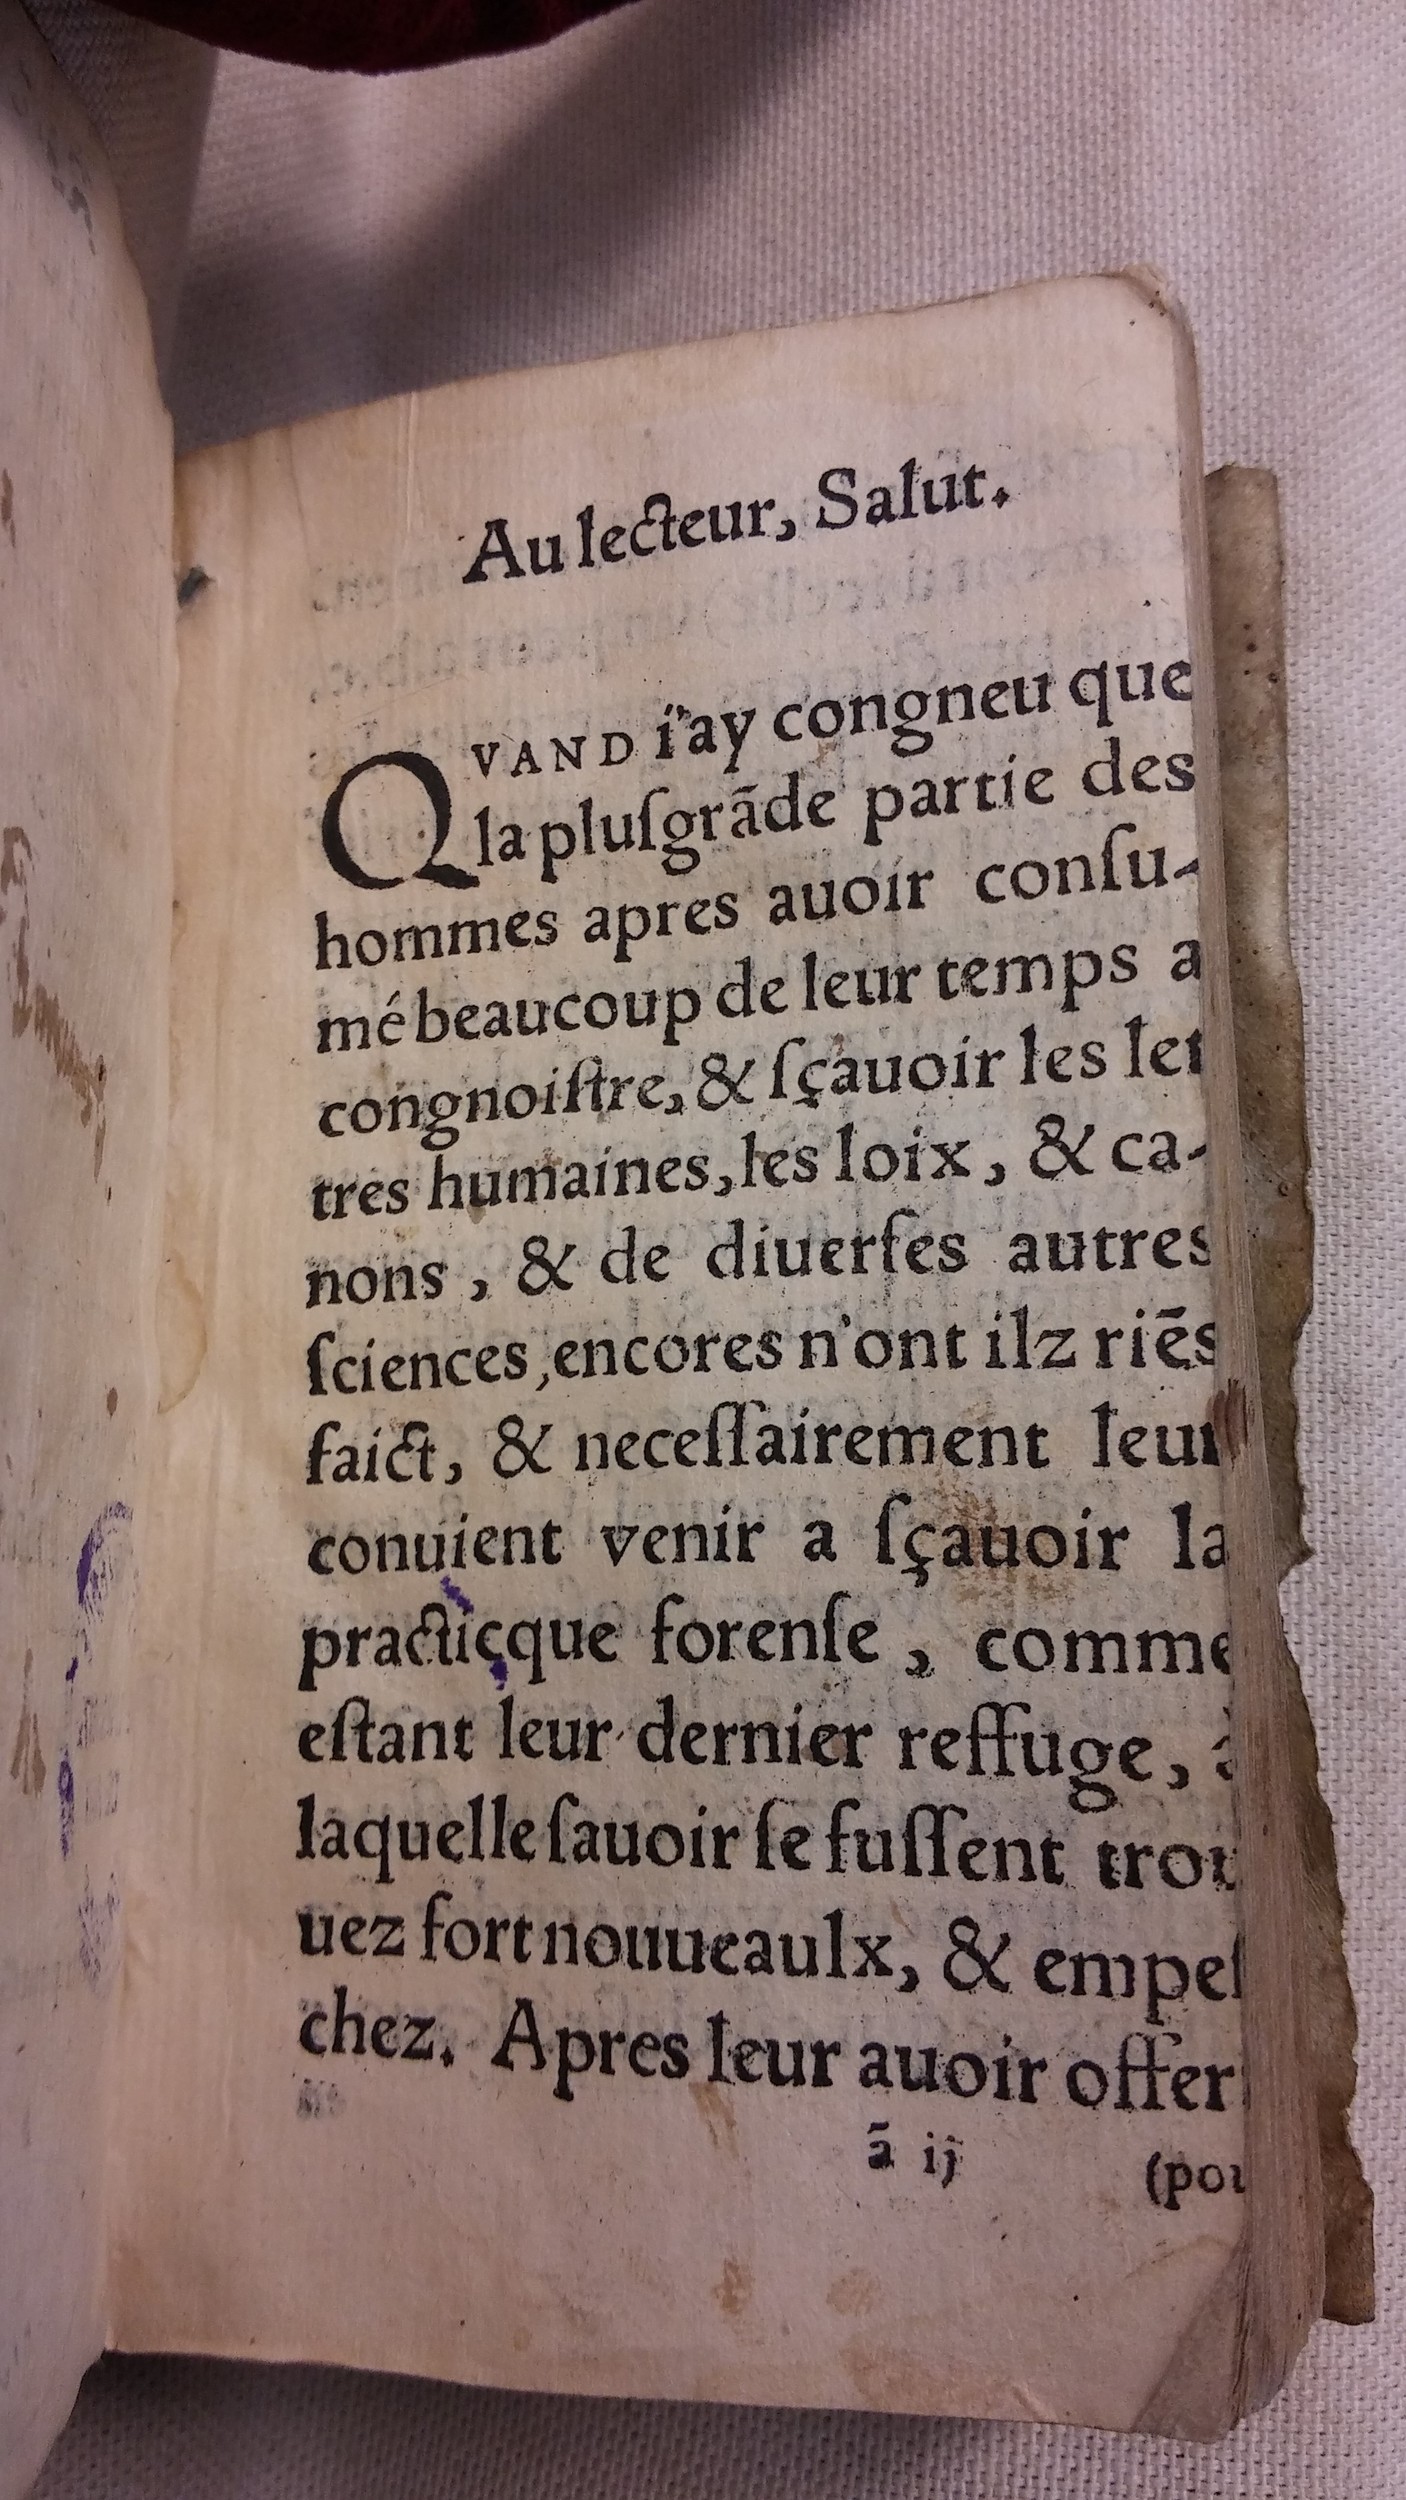 Au lecteur, Salut.
QVAND i'ay congneu que
la pluſgrāde partie des
hommes apres auoir conſu-
mé beaucoup de leur temps a
congnoiſtre, & ſçauoir les let
tres humaines, les loix, & ca-
nons, & de diuerſes autres
ſciences, encores n'ont ilz riēs
faict, & neceſſairement leur
conuient venir a ſçauoir la
practicque forenſe, comme
eſtant leur dernier reffuge, à
laquelle ſauoir ſe fuſſent trou
uez fort nouueaulx, & empeſ
chez. Apres leur auoir offer
ā ij
(pou